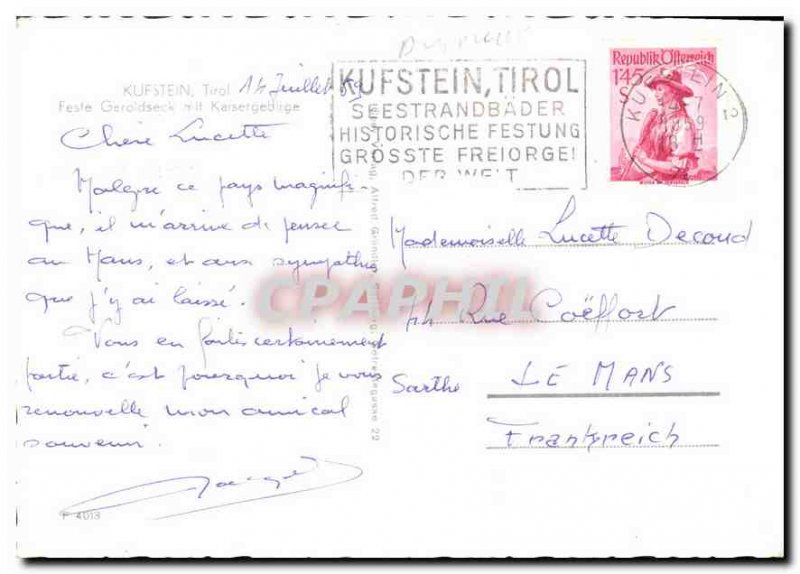 KUFSTEIN, Tirol 14 Juillet 59
Feste Geroldseck mit Kaisergebirge
Chère Lucette
Malgré ce pays magnifi-
que, il m'arrive de penser
au Mans, et aux sympathies
que j'y ai laissé.
Vous en faites certainement
partie, c'est pourquoi je vous
renouvelle mon amical
souvenir.
P 4013
KUFSTEIN, TIROL
SEESTRANDBÄDER
HISTORISCHE FESTUNG
GRÖSSTE FREIORGEL
DER WELT
Republik Österreich
1'45
S
KUFSTEIN 2
Mademoiselle Lucette Decoud
44 Rue Coëffort
Sarthe LE MANS
Frankreich
CPAPHIL